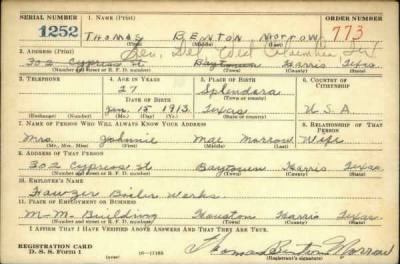 SERIAL NUMBER 1. NAME (Print) ORDER NUMBER
1252 Thomas Benton Morrow 773
(First) (Middle) (Last)
Gen. Del. West Columbia Tex
2. ADDRESS (Print)
302 Cypress St Baytown Harris Texas
(Number and street or R. F. D. number) (Town) (County) (State)
3. TELEPHONE 4. AGE IN YEARS 5. PLACE OF BIRTH 6. COUNTRY OF CITIZENSHIP
27 Splendora
DATE OF BIRTH (Town or county)
Jan. 15 1913 Texas U.S.A
(Exchange) (Number) (Mo.) (Day) (Yr.) (State or country)
7. NAME OF PERSON WHO WILL ALWAYS KNOW YOUR ADDRESS 8. RELATIONSHIP OF THAT PERSON
Mrs. Johnnie Mae Morrow Wife
(Mr., Mrs., Miss) (First) (Middle) (Last)
9. ADDRESS OF THAT PERSON
302 Cypress St Baytown Harris Texas
(Number and street or R. F. D. number) (Town) (County) (State)
10. EMPLOYER'S NAME
Boiler Works
11. PLACE OF EMPLOYMENT OR BUSINESS
M-M Building Houston Harris Texas
(Number and street or R. F. D. number) (Town) (County) (State)
I AFFIRM THAT I HAVE VERIFIED ABOVE ANSWERS AND THAT THEY ARE TRUE.
REGISTRATION CARD
D. S. S. FORM 1 (over) 16—17105 Thomas Benton Morrow
(Registrant's signature)